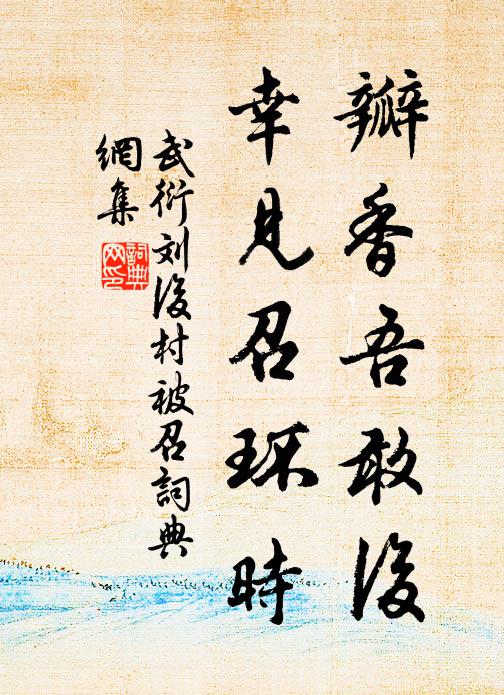 瓣香吾敢後
幸見召环時
武衍刘後村被召詞典
網集
詞典
网印